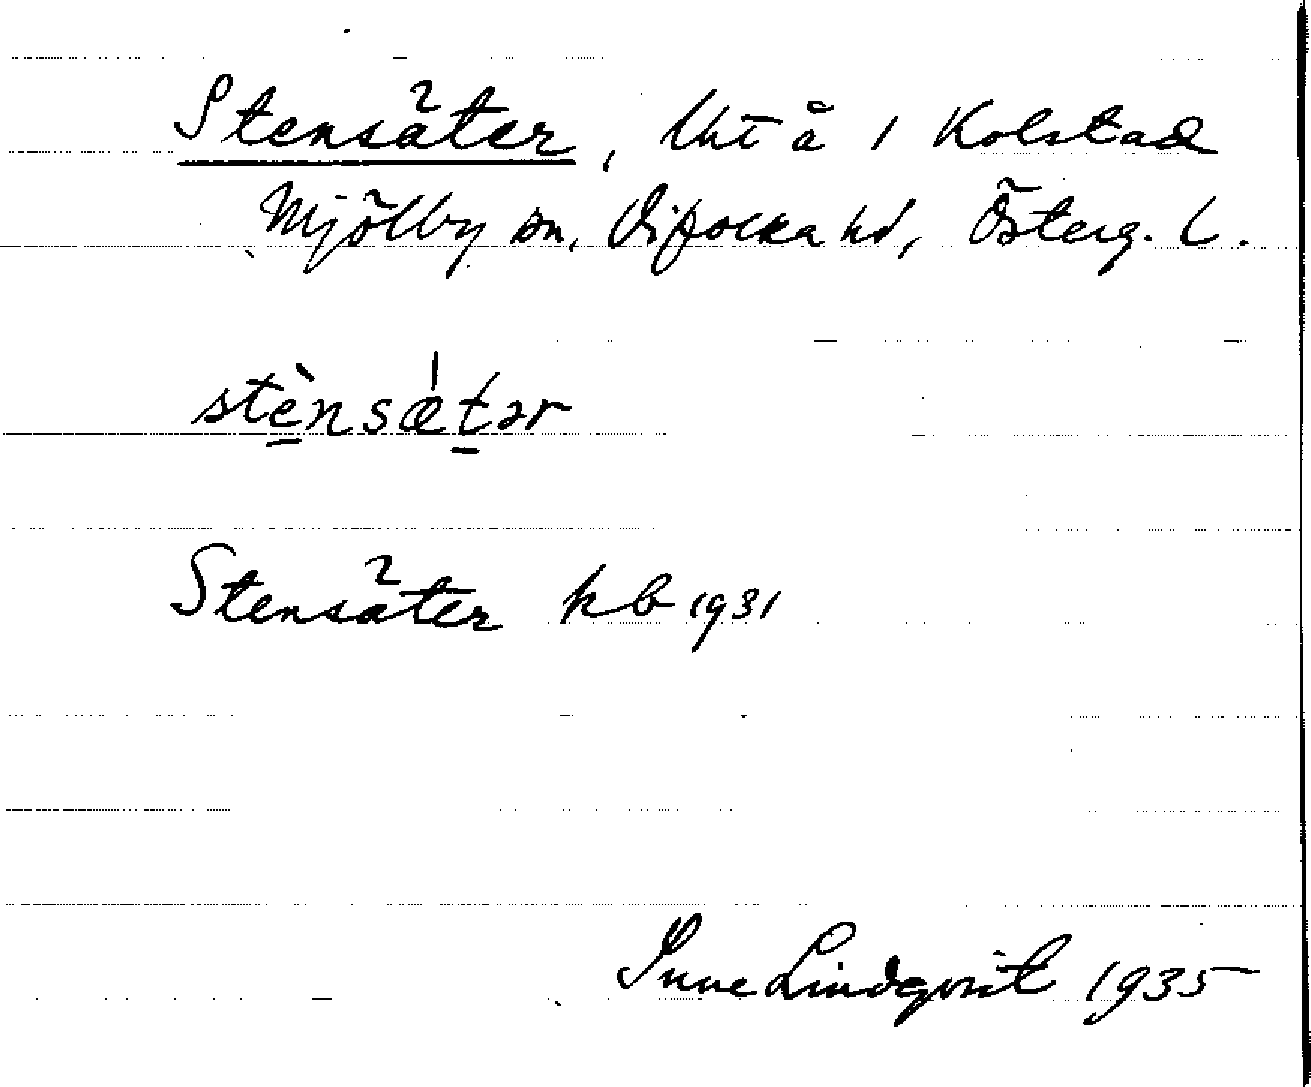 Stensäter, lht å 1 Kolstad
Mjölby sn, Vifolka hd, Österg. l.
stènsǽtər
Stensäter kb 1931
Sune Lindqvist 1935